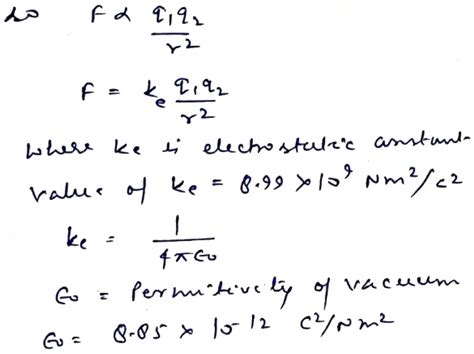 so F ∝ q₁q₂/r²
F = kₑ q₁q₂/r²
where ke is electrostatic constant
value of ke = 8.99 × 10⁹ Nm²/c²
ke = 1/4πϵ₀
ϵ₀ = Permitivity of vacuum
ϵ₀ = 8.85 × 10⁻¹² C²/Nm²